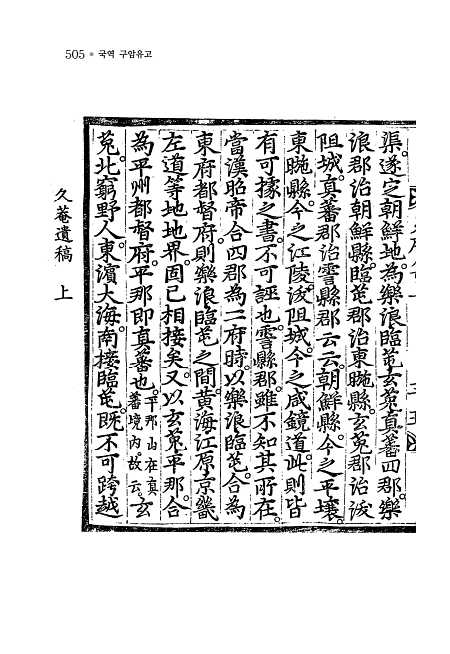 505 ● 국역 구암유고
渠。遂定朝鮮地。為樂浪臨芚玄菟真蕃四郡。樂
浪郡治朝鮮縣。臨芚郡治東暆縣。玄菟郡治沃
阻城。真蕃郡治霅縣郡云云。朝鮮縣。今之平壤。
東暆縣。今之江陵。沃阻城。今之咸鏡道。此則皆
有可據之書。不可誣也。霅縣郡。雖不知其所在。
當漢昭帝合四郡為二府時。以樂浪臨芚。合為
東府都督府。則樂浪臨芚之間。黄海江原京畿
左道等地地界。固已相接矣。又以玄菟平那。合
為平州都督府。平那即真蕃也。平那山在真蕃境內。故云。玄
菟北窮野人。東濱大海。南接臨芚。既不可跨越
久菴遺稿 上